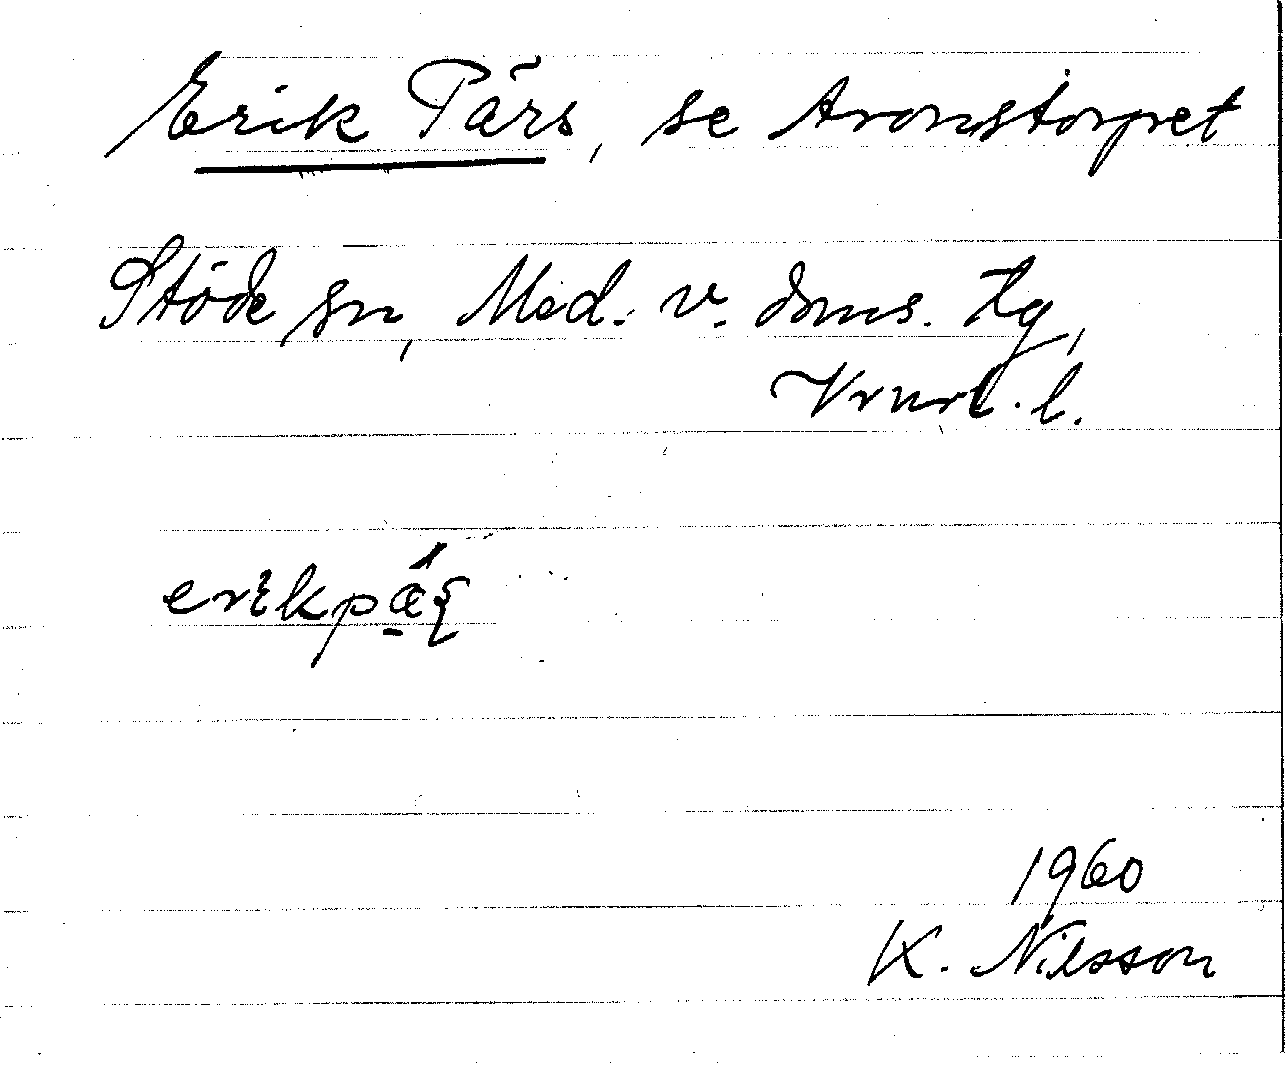 Erik Pärs, se Aronstorpet
Stöde sn, Med. v. doms. tg,
Vnorl. l.
erikpǽ̠ʂ
1960
K. Nilsson